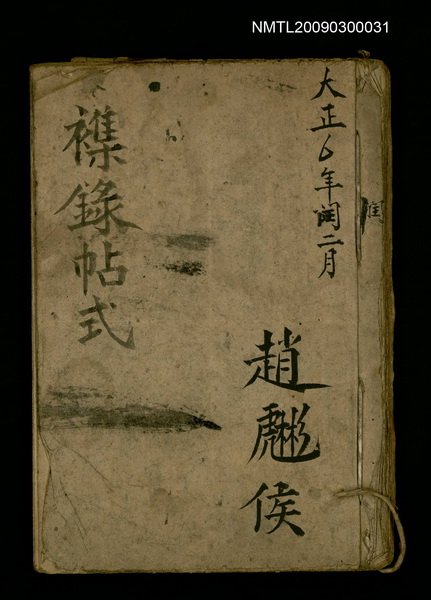 NMTL20090300031
大正6年閏二月
閏
趙
侯
襍錄帖式